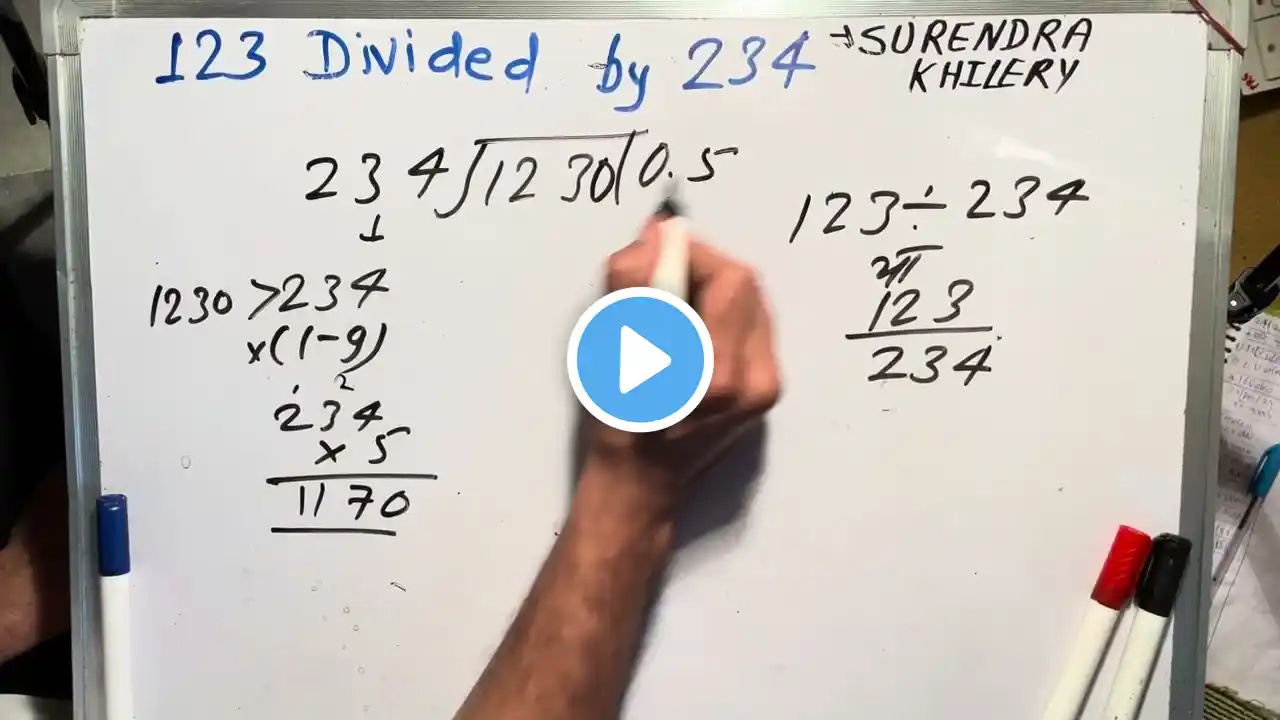 123 Divided by 234 → SURENDRA
KHILERY
234)1230(0.5
1
1230 > 234
×(1-9)
1 2
234
× 5
1170
123 ÷ 234
या
123
234